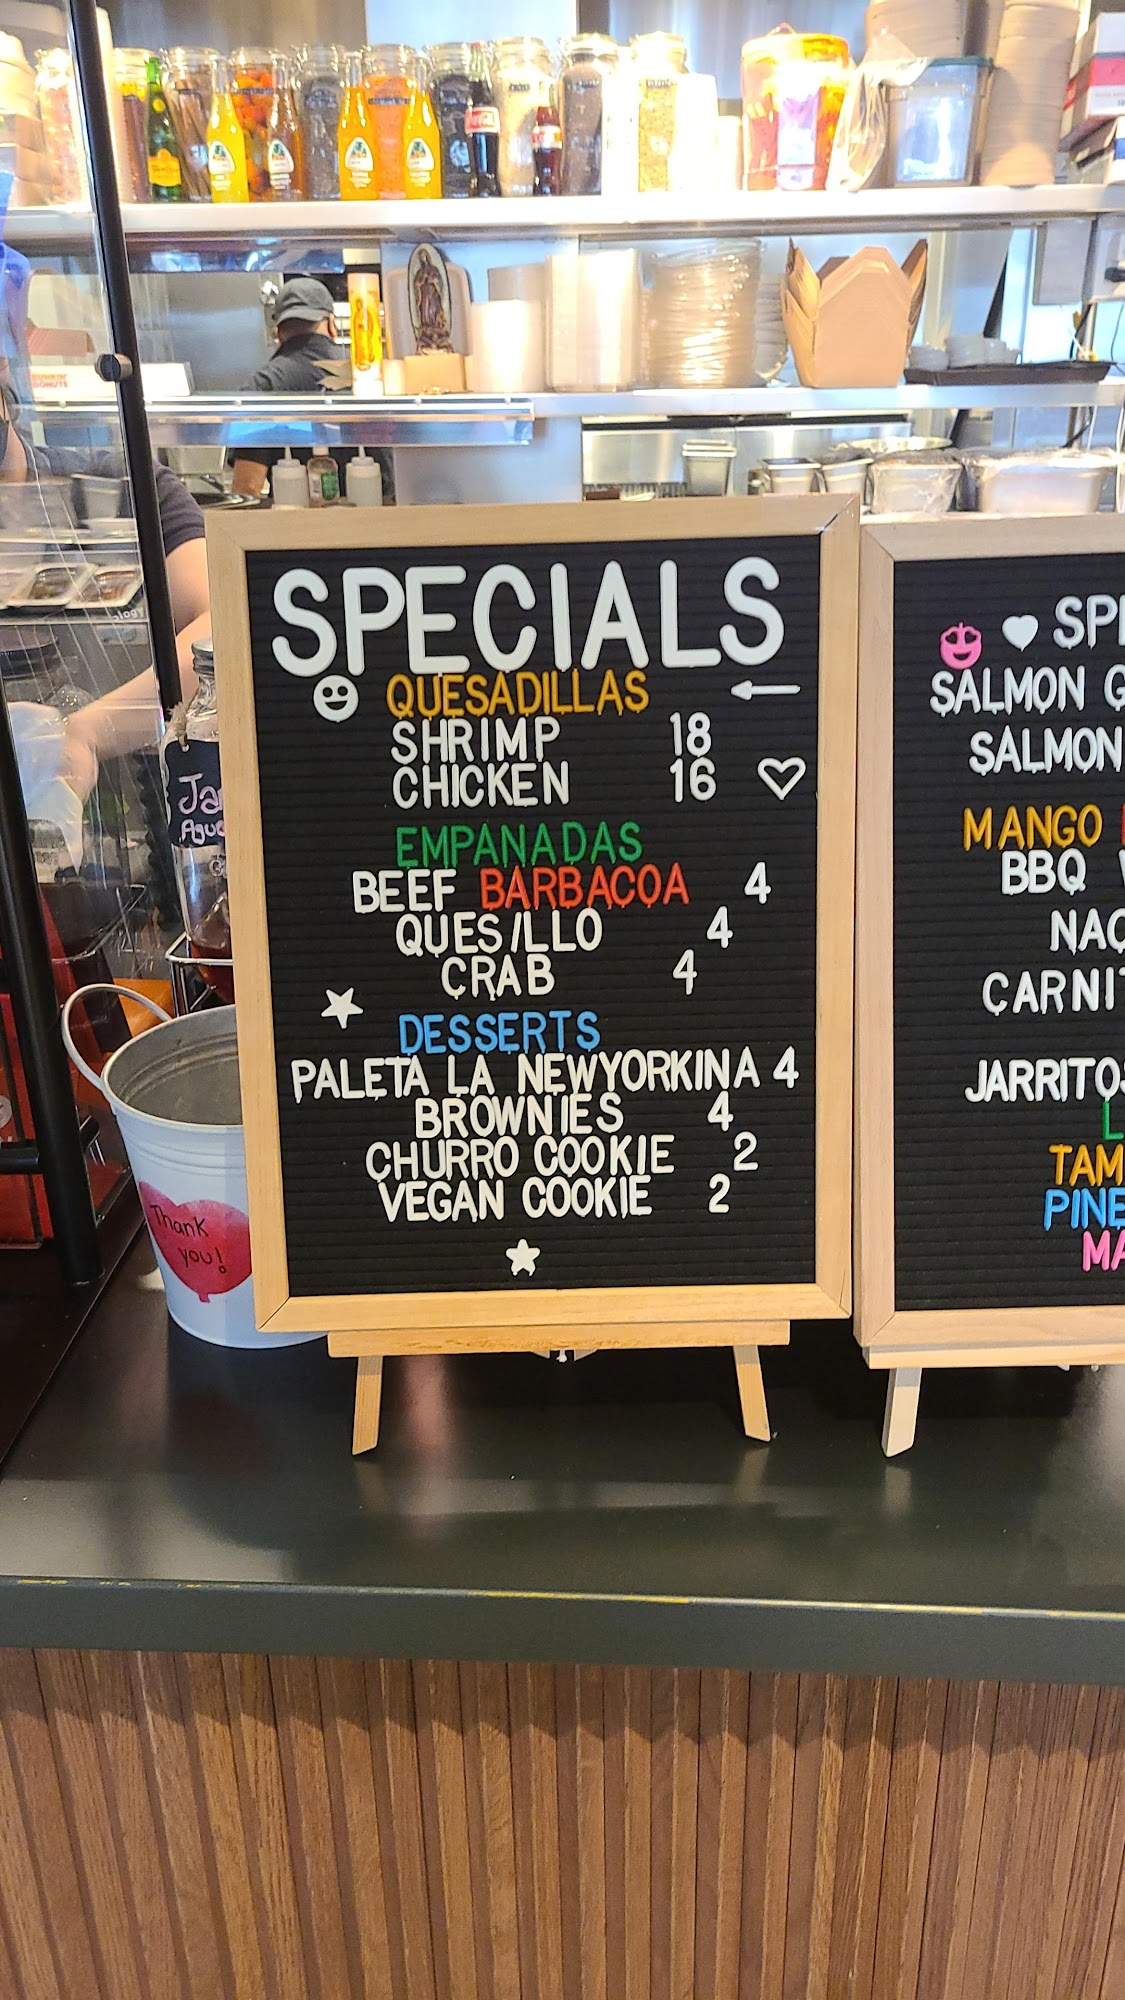 SPECIALS
QUESADILLAS
SHRIMP 18
CHICKEN 16
EMPANADAS
BEEF BARBACOA 4
QUESILLO 4
CRAB 4
DESSERTS
PALETA LA NEWYORKINA 4
BROWNIES 4
CHURRO COOKIE 2
VEGAN COOKIE 2
SALMON
SALMON
MANGO
BBQ
JARRITOS
Thank
you!
DUNKIN'
DONUTS